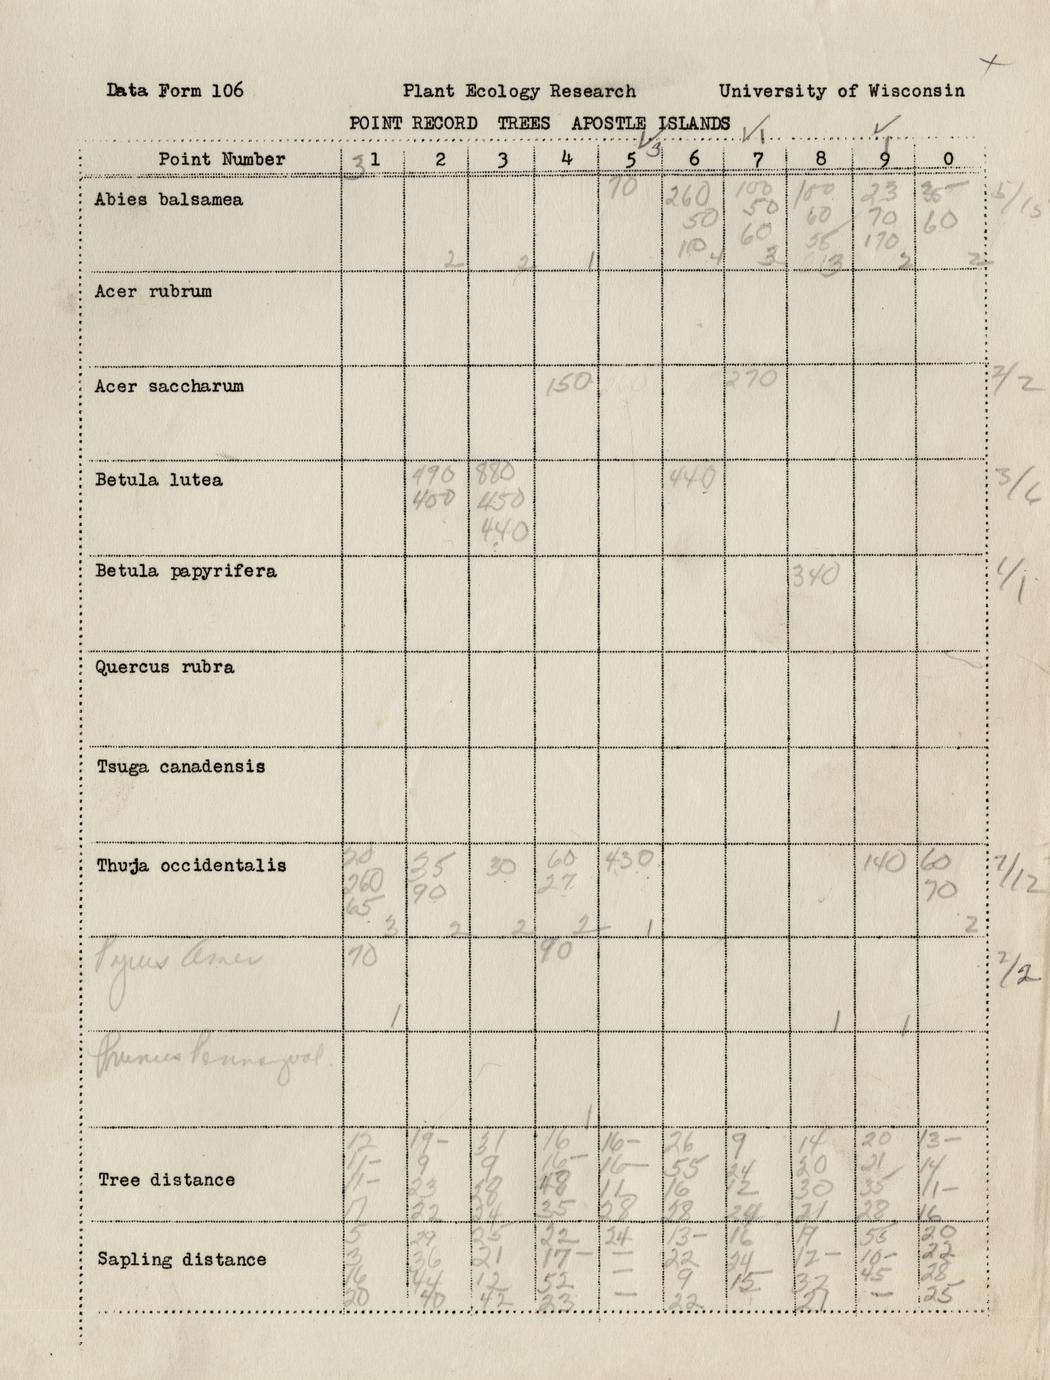 Data Form 106 Plant Ecology Research University of Wisconsin
POINT RECORD TREES APOSTLE ISLANDS
Point Number 1 2 3 4 5 6 7 8 9 0
Abies balsamea 70 260 100 100 23 35 5/15
50 50 60 70 60
110 60 55 170
2 2 1 4 3 3 2 2
Acer rubrum
Acer saccharum 150 270 2/2
Betula lutea 490 880 440 3/6
400 450
440
Betula papyrifera 340 1/1
Quercus rubra
Tsuga canadensis
Thuja occidentalis 20 35 30 60 430 140 60 7/12
260 90 27 70
65
3 2 2 2 1 2
Pyrus Amer 70 90 2/2
1 1 1
Prunus Pennsyvol.
1
12 19- 31 16 16- 26 9 14 20 13-
11- 9 9 16- 16- 55 24 20 21 14
Tree distance 11- 23 28 48 11 16 12 30 35 11-
17 22 24 35 28 28 24 21 28 16
5 29 25 22 24 13- 16 19 55 20
Sapling distance 3 36 21 17- — 22 24 12- 10- 22
16 44 12 52 — 9 15 32 45 28
20 40 42 23 — 22 21 — 25